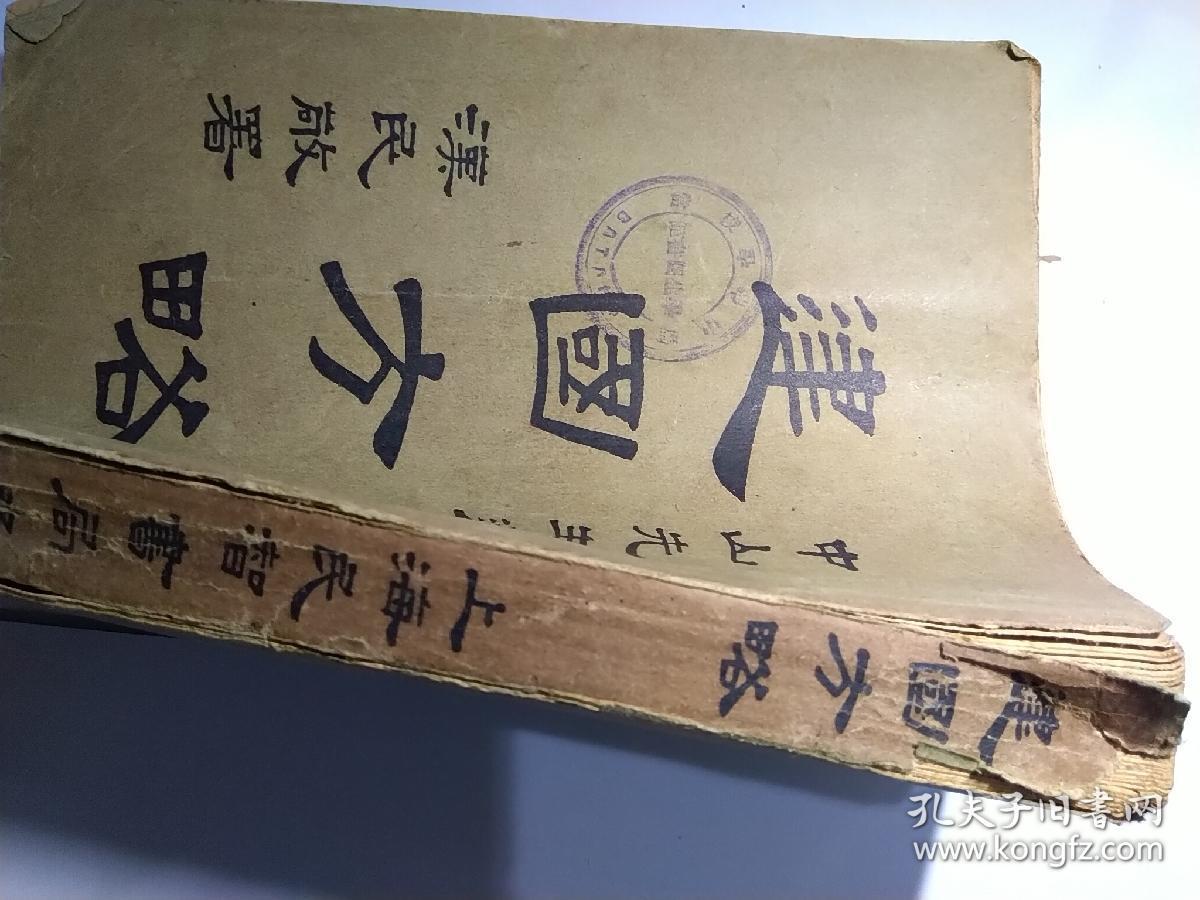 中山先生
建國方略
漢民敬署
建國方略
上海民智書局
孔夫子旧书网
www.kongfz.com